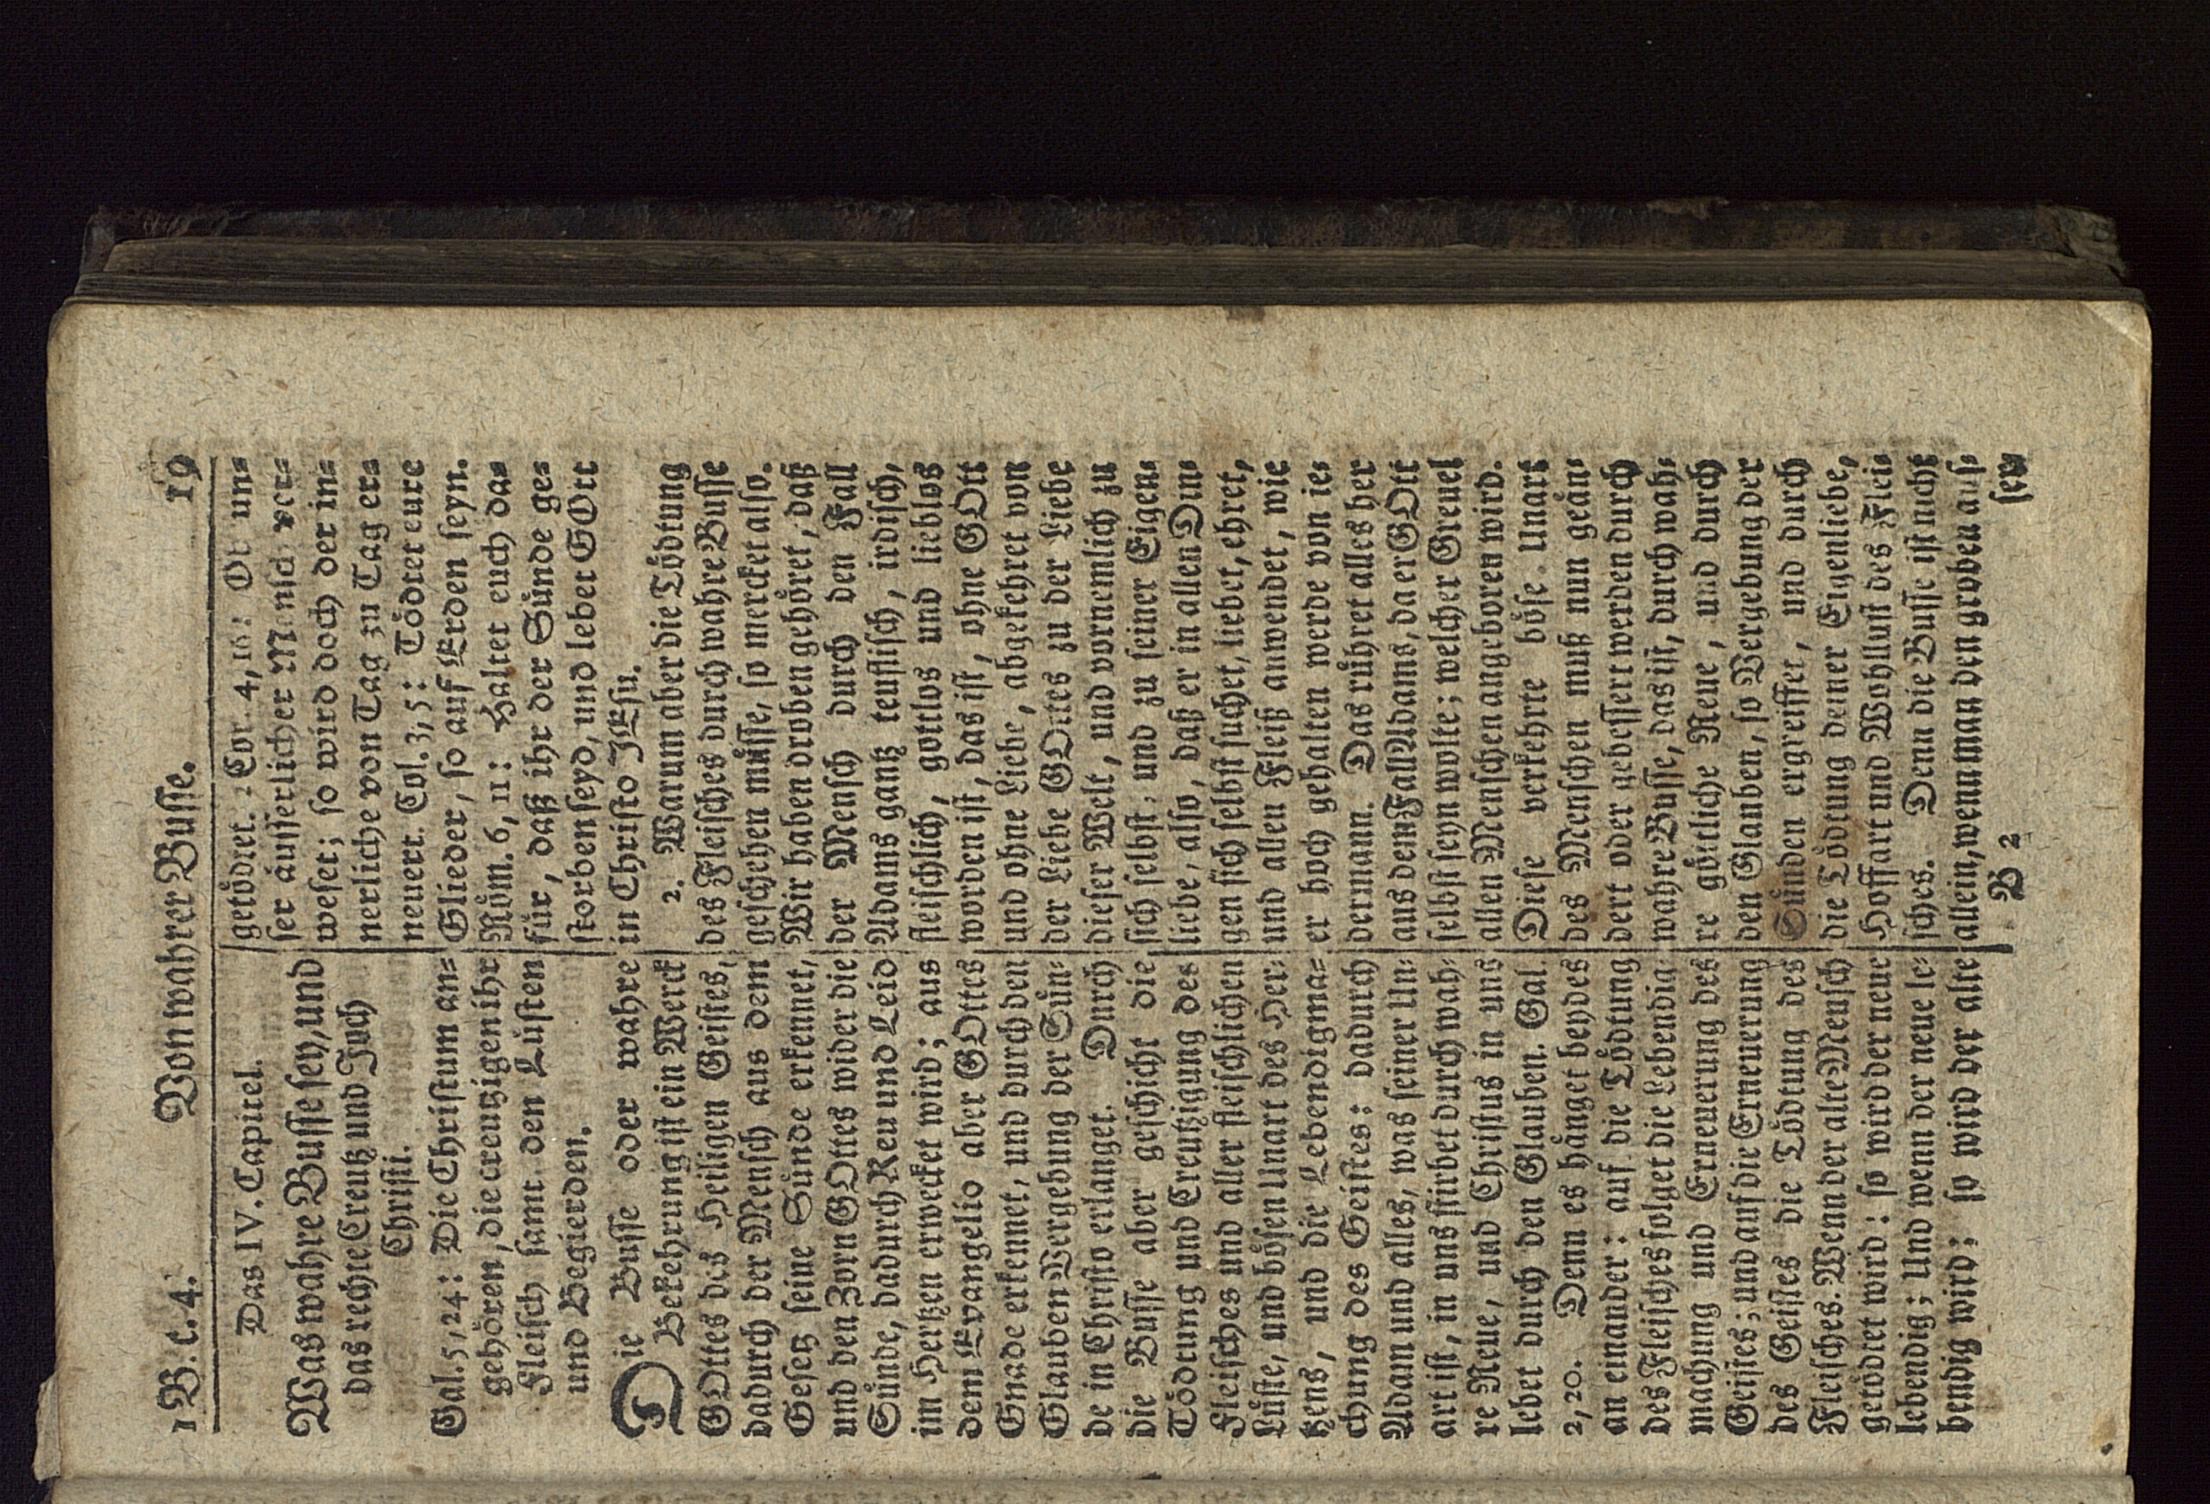 1 B. c. 4. Von wahrer Busse. 19
Das IV. Capitel.
Was wahre Busse sey, und
das rechte Creutz und Joch
Christi.
Gal. 5, 24: Die Christum an-
gehören, die creutzigen ihr
Fleisch samt den Lüsten
und Begierden.
Die Busse oder wahre
Bekehrung ist ein Werck
GOttes des Heiligen Geistes,
dadurch der Mensch aus dem
Gesetz seine Sünde erkennet,
und den Zorn GOttes wider die
Sünde, dadurch Reu und Leid
im Hertzen erwecket wird; aus
dem Evangelio aber GOttes
Gnade erkennet, und durch den
Glauben Vergebung der Sün-
de in Christo erlanget. Durch
die Busse aber geschicht die
Tödtung und Creutzigung des
Fleisches und aller fleischlichen
Lüste, und bösen Unart des Her-
tzens, und die Lebendigma-
chung des Geistes: dadurch
Adam und alles, was seiner Un-
art ist, in uns stirbet durch wah-
re Reue, und Christus in uns
lebet durch den Glauben. Gal.
2, 20. Denn es hänget beydes
an einander: auf die Tödtung
des Fleisches folget die Lebendig-
machung und Erneuerung des
Geistes; und auf die Erneuerung
des Geistes die Tödtung des
Fleisches. Wenn der alte Mensch
getödtet wird: so wird der neue
lebendig; Und wenn der neue le-
bendig wird: so wird der alte
getödtet. 2 Cor. 4, 16: Ob un-
ser äusserlicher Mensch ver-
weset; so wird doch der in-
nerliche von Tag zu Tag er-
neuert. Col. 3, 5: Tödtet eure
Glieder, so auf Erden seyn.
Röm. 6, 11: Haltet euch da-
für, daß ihr der Sünde ge-
storben seyd, und lebet GOtt
in Christo JEsu.
2. Warum aber die Tödtung
des Fleisches durch wahre Busse
geschehen müsse, so mercket also.
Wir haben droben gehöret, daß
der Mensch durch den Fall
Adams gantz teuflisch, irdisch,
fleischlich, gottlos und lieblos
worden ist, das ist, ohne GOtt
und ohne Liebe, abgekehret von
der Liebe GOttes zu der Liebe
dieser Welt, und vornemlich zu
sich selbst, und zu seiner Eigen-
liebe, also, daß er in allen Din-
gen sich selbst suchet, liebet, ehret,
und allen Fleiß anwendet, wie
er hoch gehalten werde von ie-
dermann. Das rühret alles her
aus dem Fall Adams, da er GOtt
selbst seyn wolte; welcher Greuel
allen Menschen angeboren wird.
Diese verkehrte böse Unart
des Menschen muß nun geän-
dert oder gebessert werden durch
wahre Busse, das ist, durch wah-
re göttliche Reue, und durch
den Glauben, so Vergebung der
Sünden ergreiffet, und durch
die Tödtung deiner Eigenliebe,
Hoffart und Wohllust des Flei-
sches. Denn die Busse ist nicht
allein, wenn man den groben äus-
B 2 sern